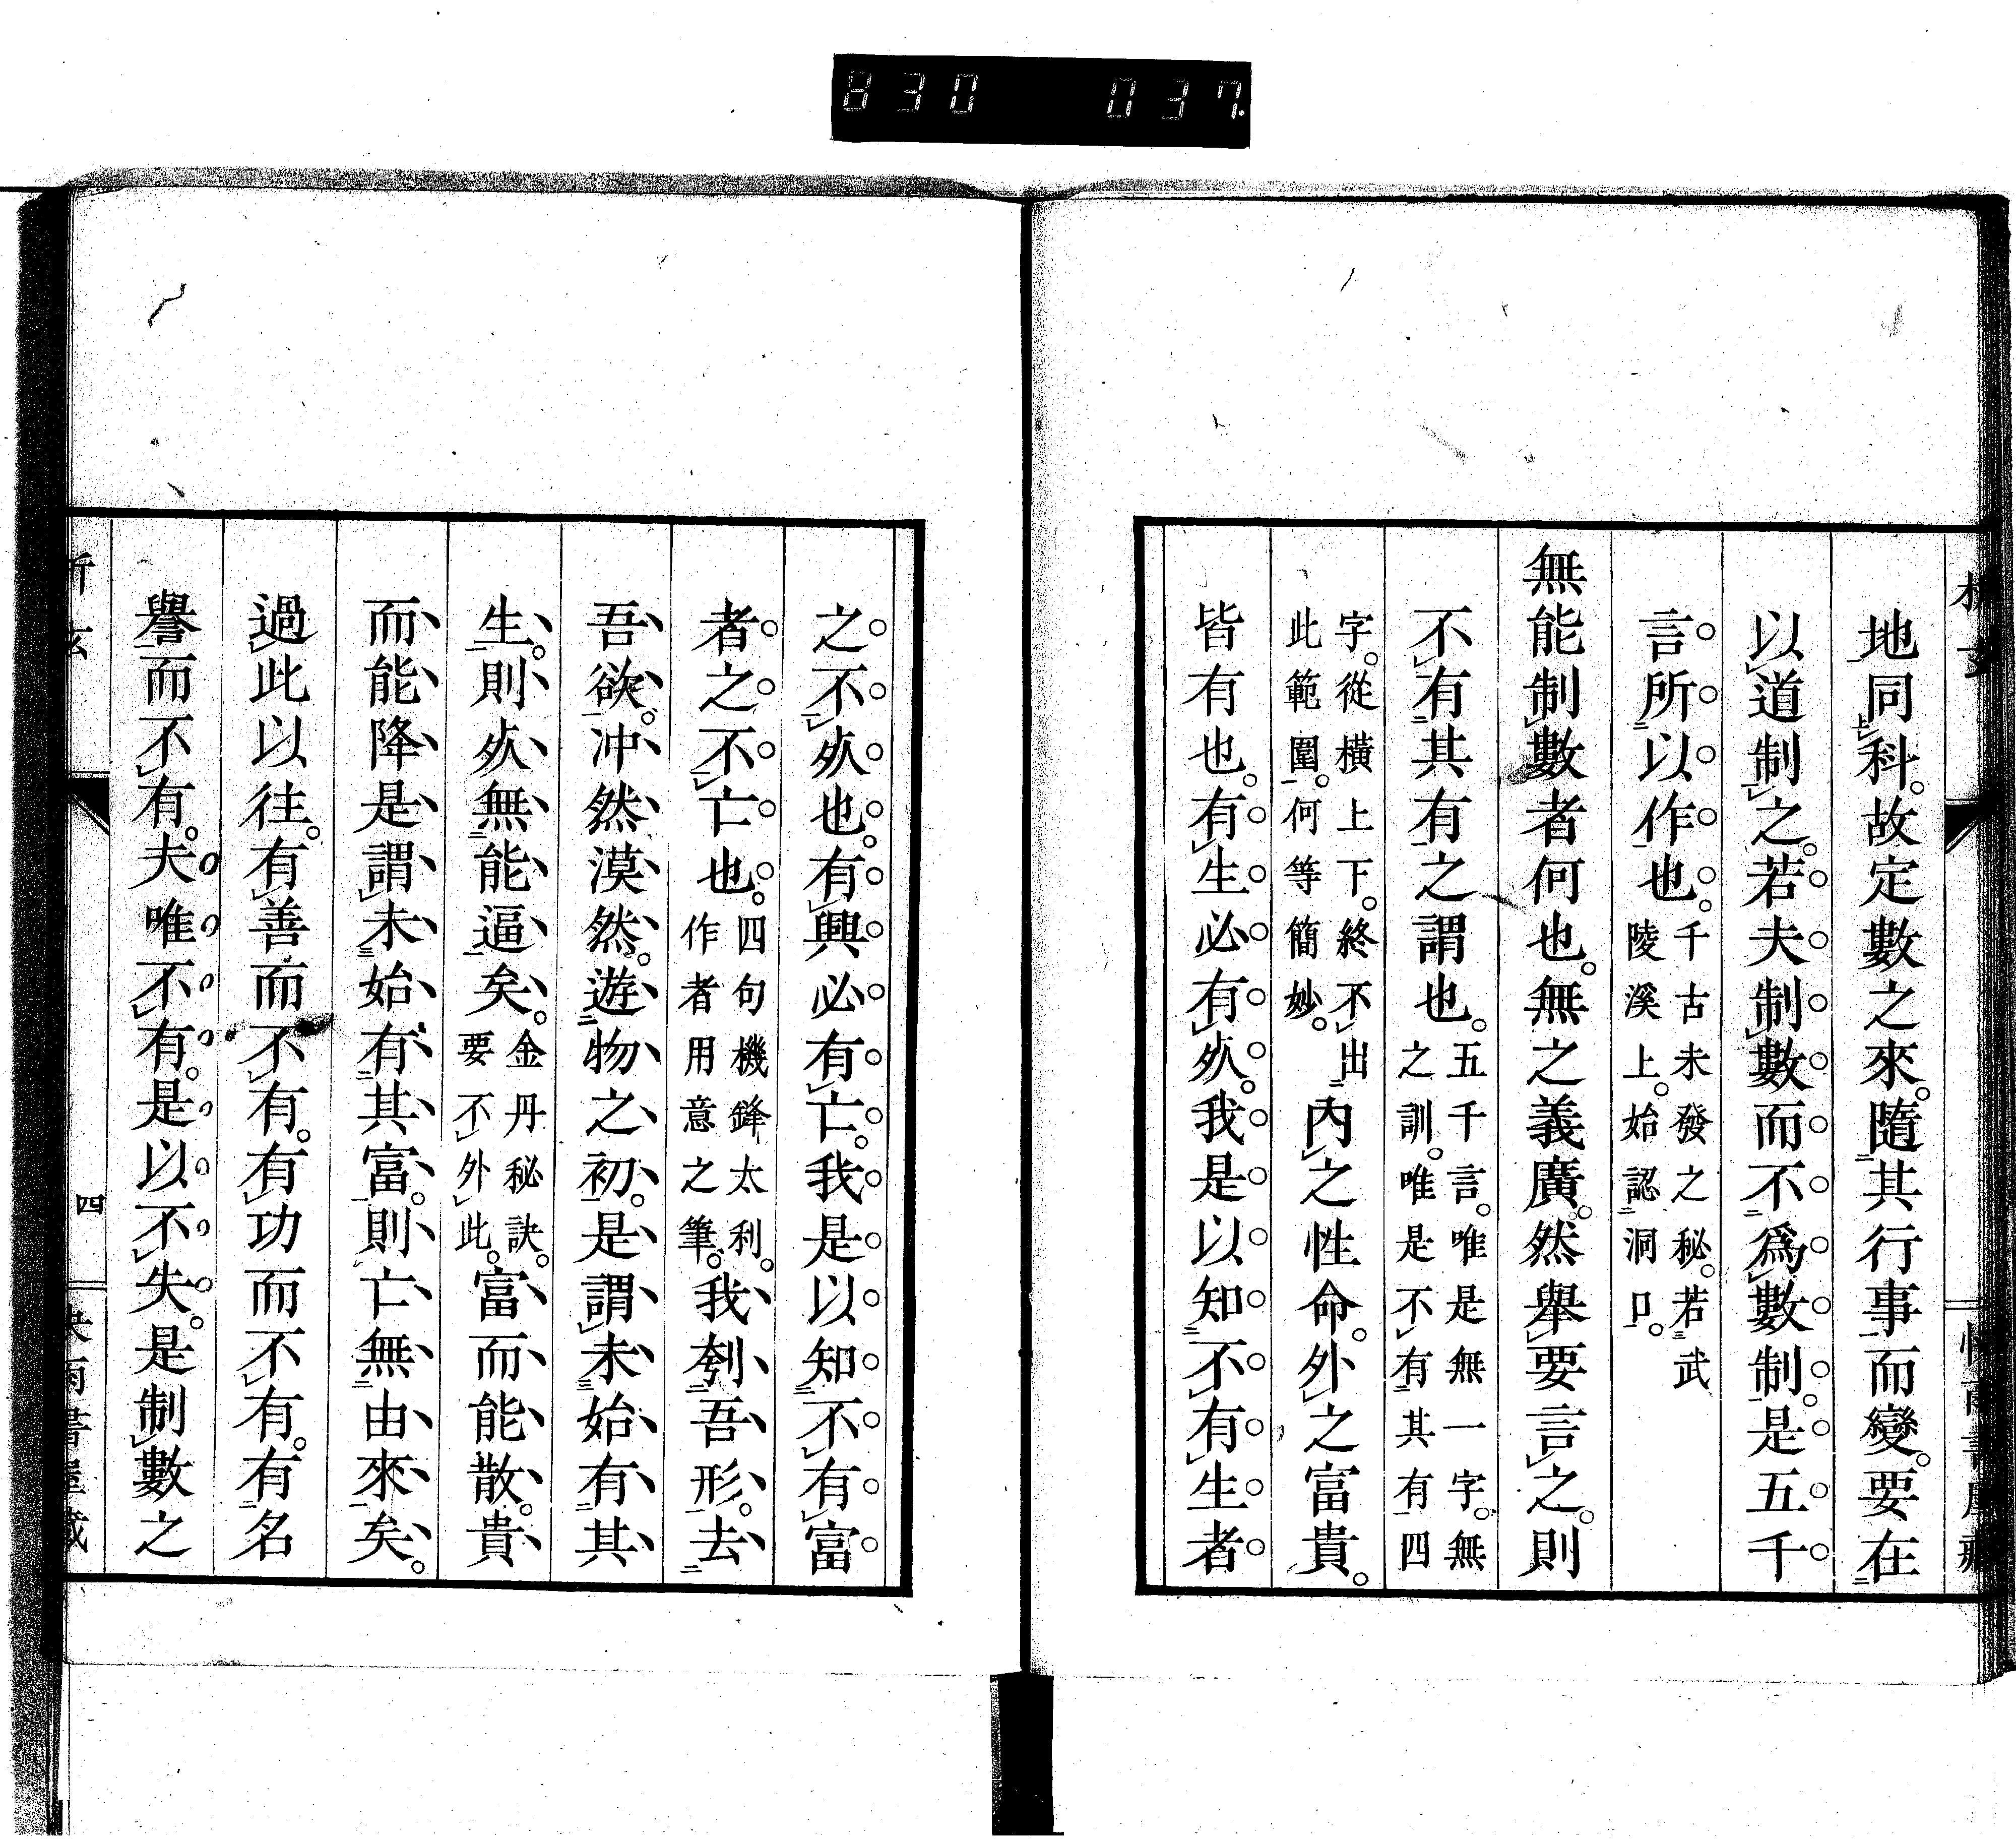 830 037
地同科。故定數之來。隨其行事而變。要在
以道制之。若夫制數而不爲數制。是五千
言所以作也。千古未發之秘。若武
陵溪上。始認洞口。
無能制數者何也。無之義廣。然舉要言之。則
不有其有之謂也。五千言。唯是無一字。無
之訓。唯是不有其有四
字。從橫上下。終不出
此範圍。何等簡妙。內之性命。外之富貴。
皆有也。有生必有死。我是以知不有生者
之不死也。有興必有亡。我是以知不有富
者之不亡也。四句機鋒太利。
作者用意之筆。我刳吾形。去
吾欲。沖然漠然。遊物之初。是謂未始有其
生。則死無能逼矣。金丹秘訣。
要不外此。富而能散。貴
而能降。是謂未始有其富。則亡無由來矣。
過此以往。有善而不有。有功而不有。有名
譽而不有。夫唯不有。是以不失。是制數之
四